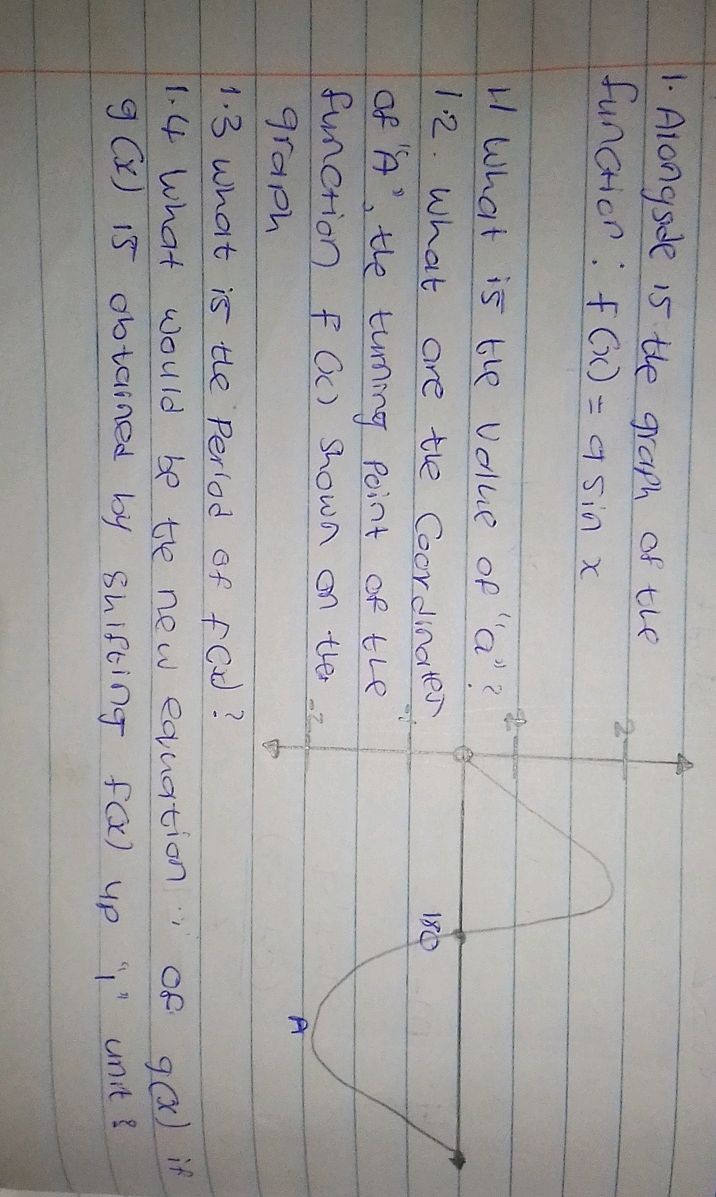 1. Alongside is the graph of the
function: f(x) = a sin x
1.1 What is the value of "a"?
1.2. What are the Coordinates
of "A", the turning Point of the
function f(x) shown on the
graph
1.3 What is the Period of f(x)?
1.4 What would be the new equation of g(x) if
g(x) is obtained by shifting f(x) up "1" unit?
2
1
-1
-2
180
A